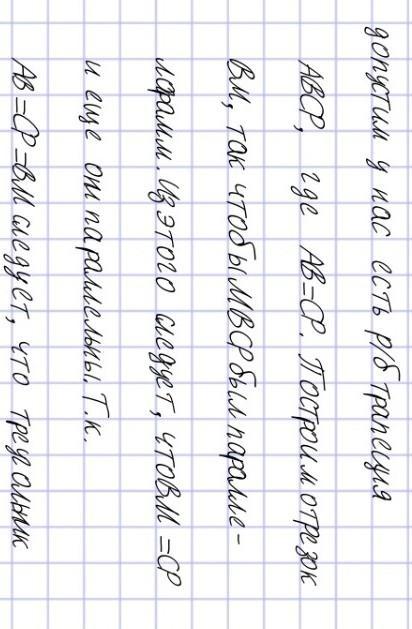 допустим у нас есть р/б трапеция
АВСР, где АВ=СР. Построим отрезок
ВМ, так чтобы МВСР был паралле-
лорамм. Из этого следует, что ВМ =СР
и еще от параллельны. Т.к.
АВ=СР=ВМ следует, что треуольник